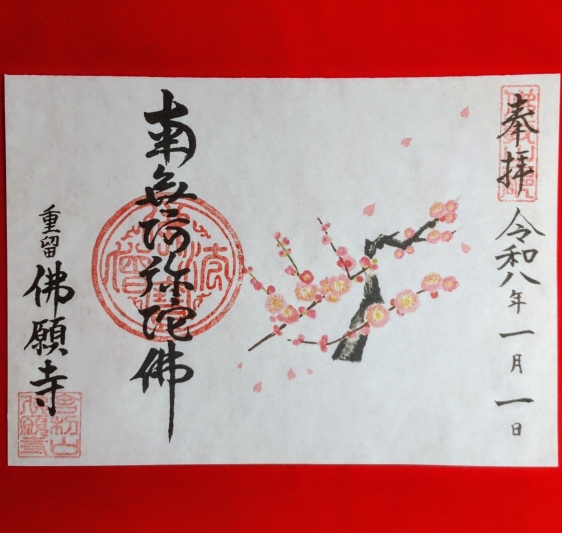 奉拝
令和八年一月一日
南無阿弥陀佛
重留
佛願寺